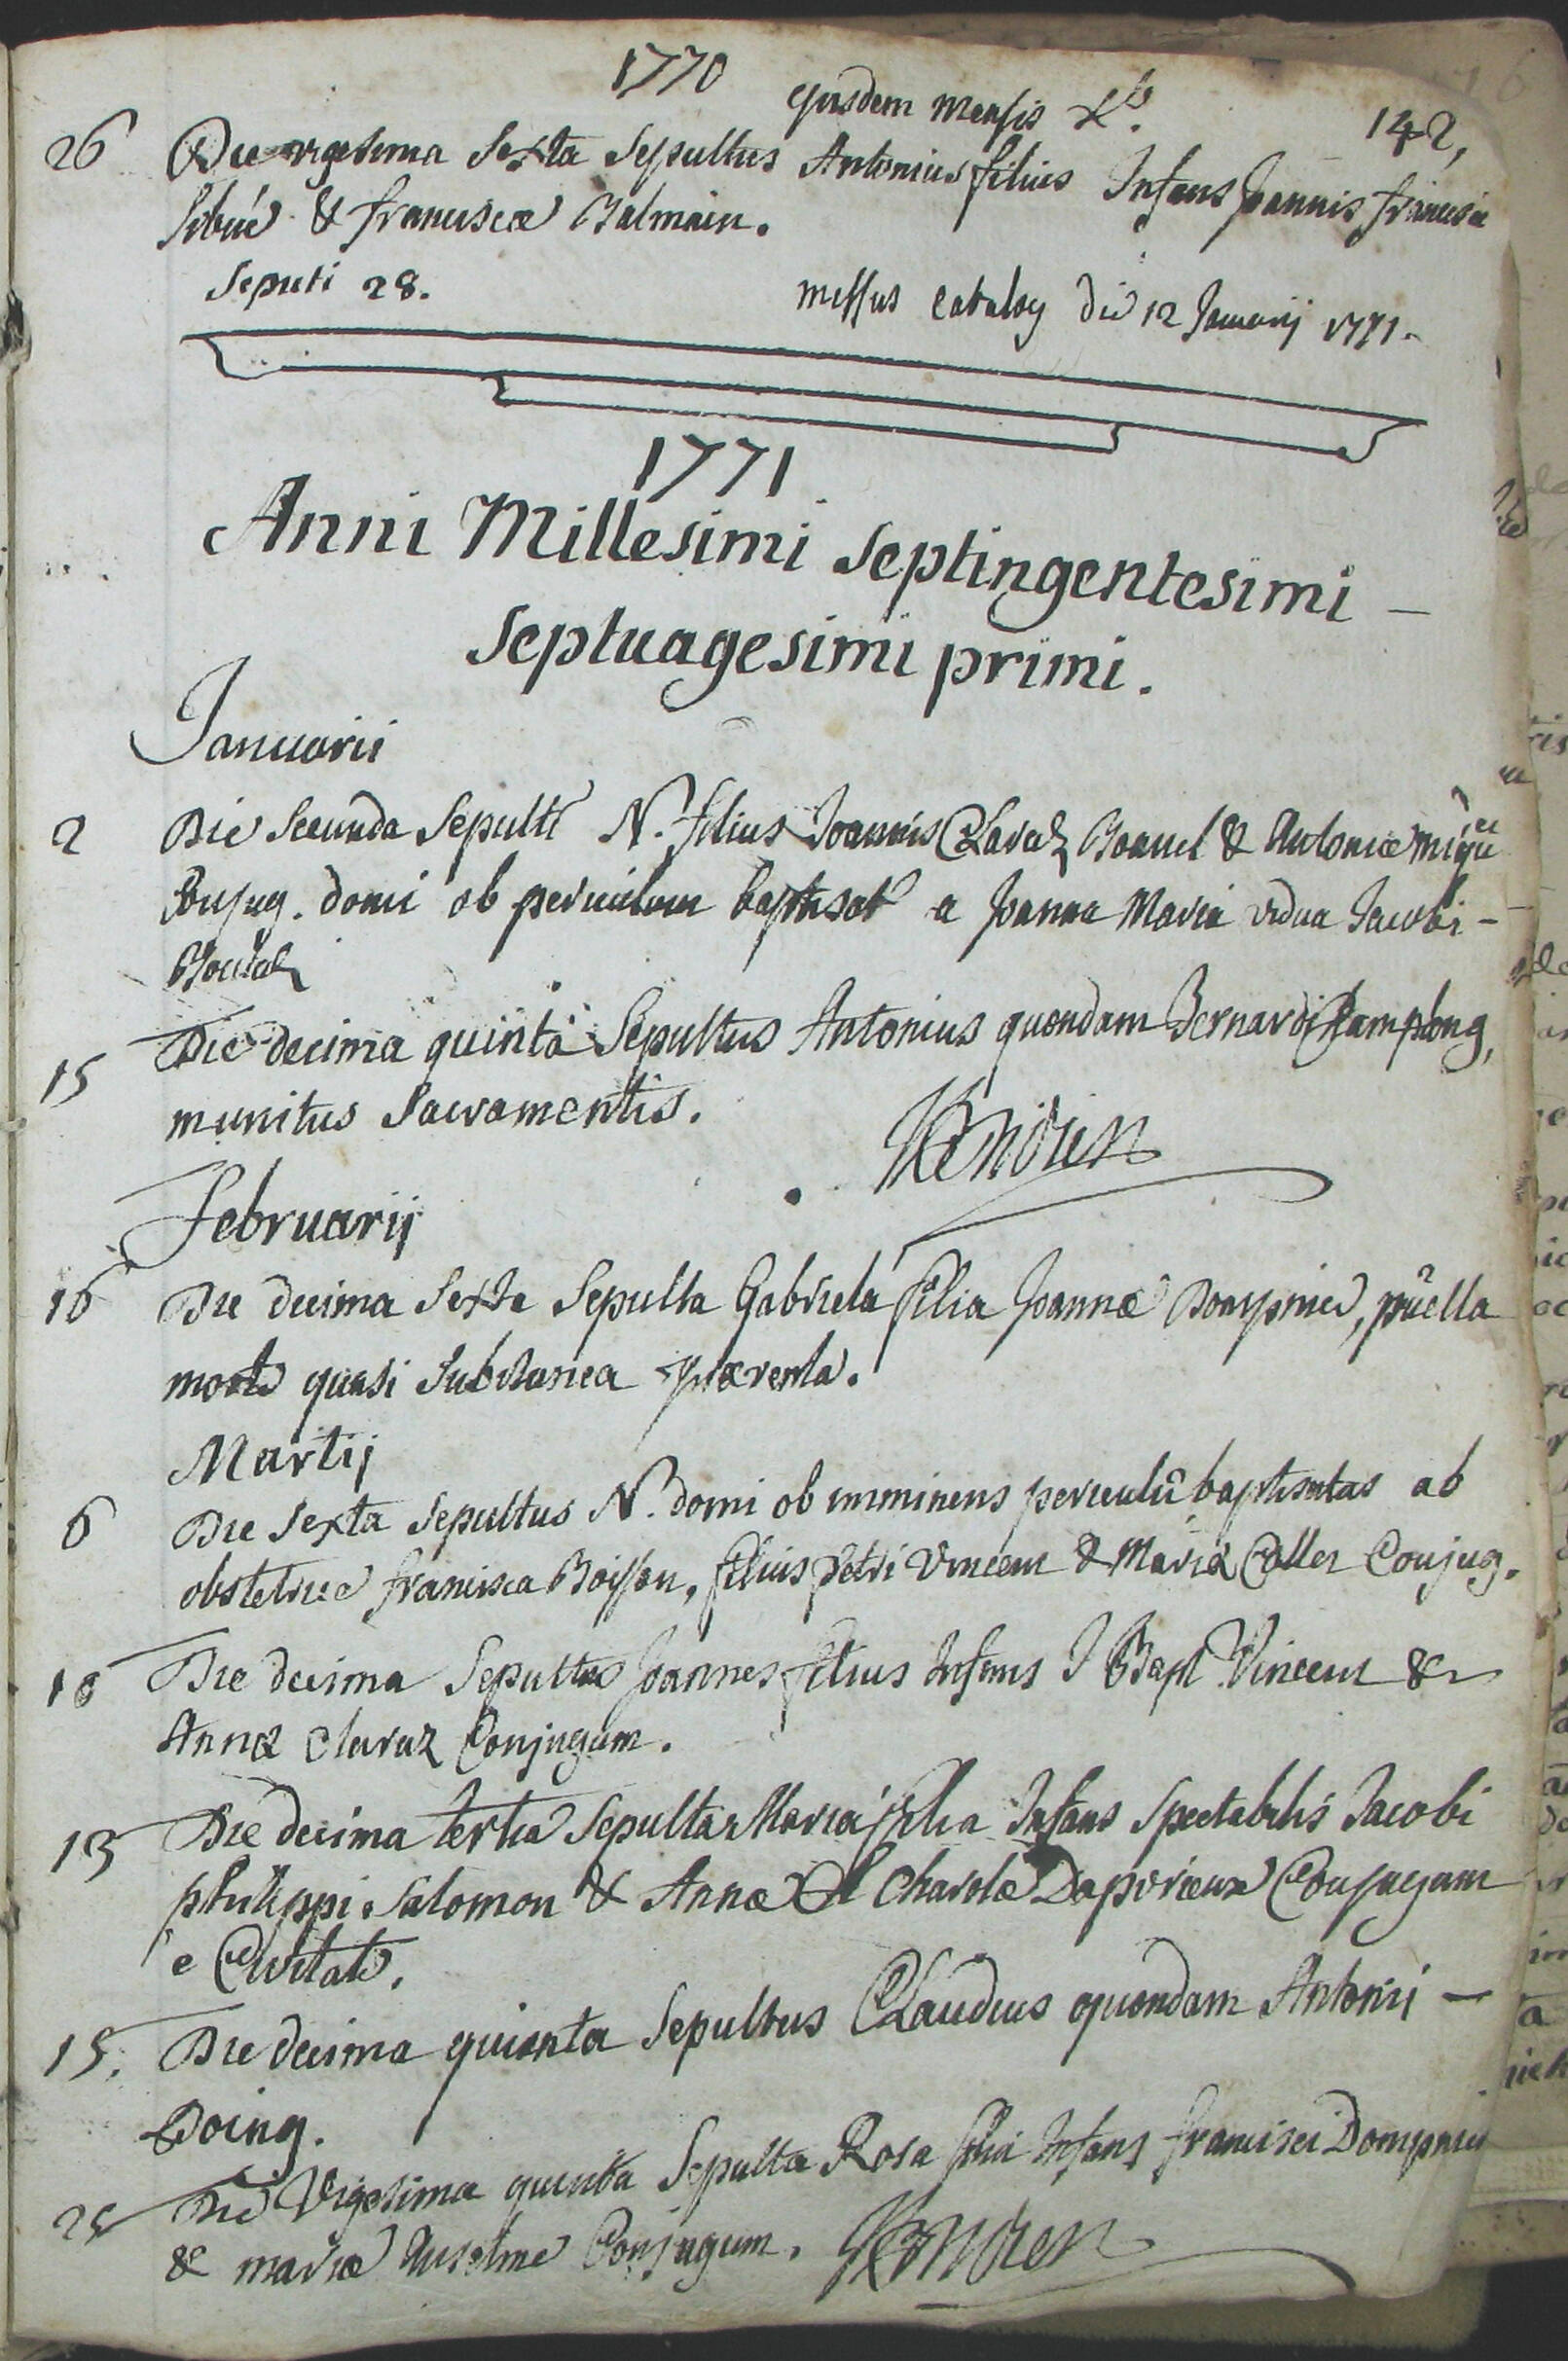 1770
ejusdem mensis Xbris.
142,
26 Die vigesima Sexta Sepultus Antonius filius Infans Joannis francisci
& franciscæ Balmain.
Sepulti 28.
missus Catalog die 12 Januarij 1771.
1771
Anni Millesimi Septingentesimi —
Septuagesimi primi.
Januarii
2 Die Secunda Sepultr N. filius Joannis Claraz & Antoniæ
Conjug. domi ob periculum baptisatr a Joanna Maria vidua Jacobi —
15 Die decima quinta Sepultus Antonius quondam Bernardi Ramplong,
munitus Sacramentis.
Februarij
16 Die decima Sexta Sepulta Gabriela filia Joannæ Dompnier, puella
morte quasi Subitanea præventa.
Martij
6 Die Sexta Sepultus N. domi ob imminens periculû baptisatus ab
obstetrice francisca Boisson, filius Petri Vincent & Mariæ Collet Conjug.
10 Die decima Sepultus Joannes filius Infans J Bapt Vincent &
Annæ Claraz Conjugum.
13 Die decima tertia Sepulta Maria filia Infans Spectabilis Jacobi
philippi Salomon & Annæ Charlæ Dapvrieux Conjugum
e Civitate.
15. Die decima quinta Sepultus Claudius quondam Antonii —
Doing.
25 Die Vigesima quinta Sepulta Rosa filia Infans francisci Dompnier
& mariæ Anselme Conjugum.